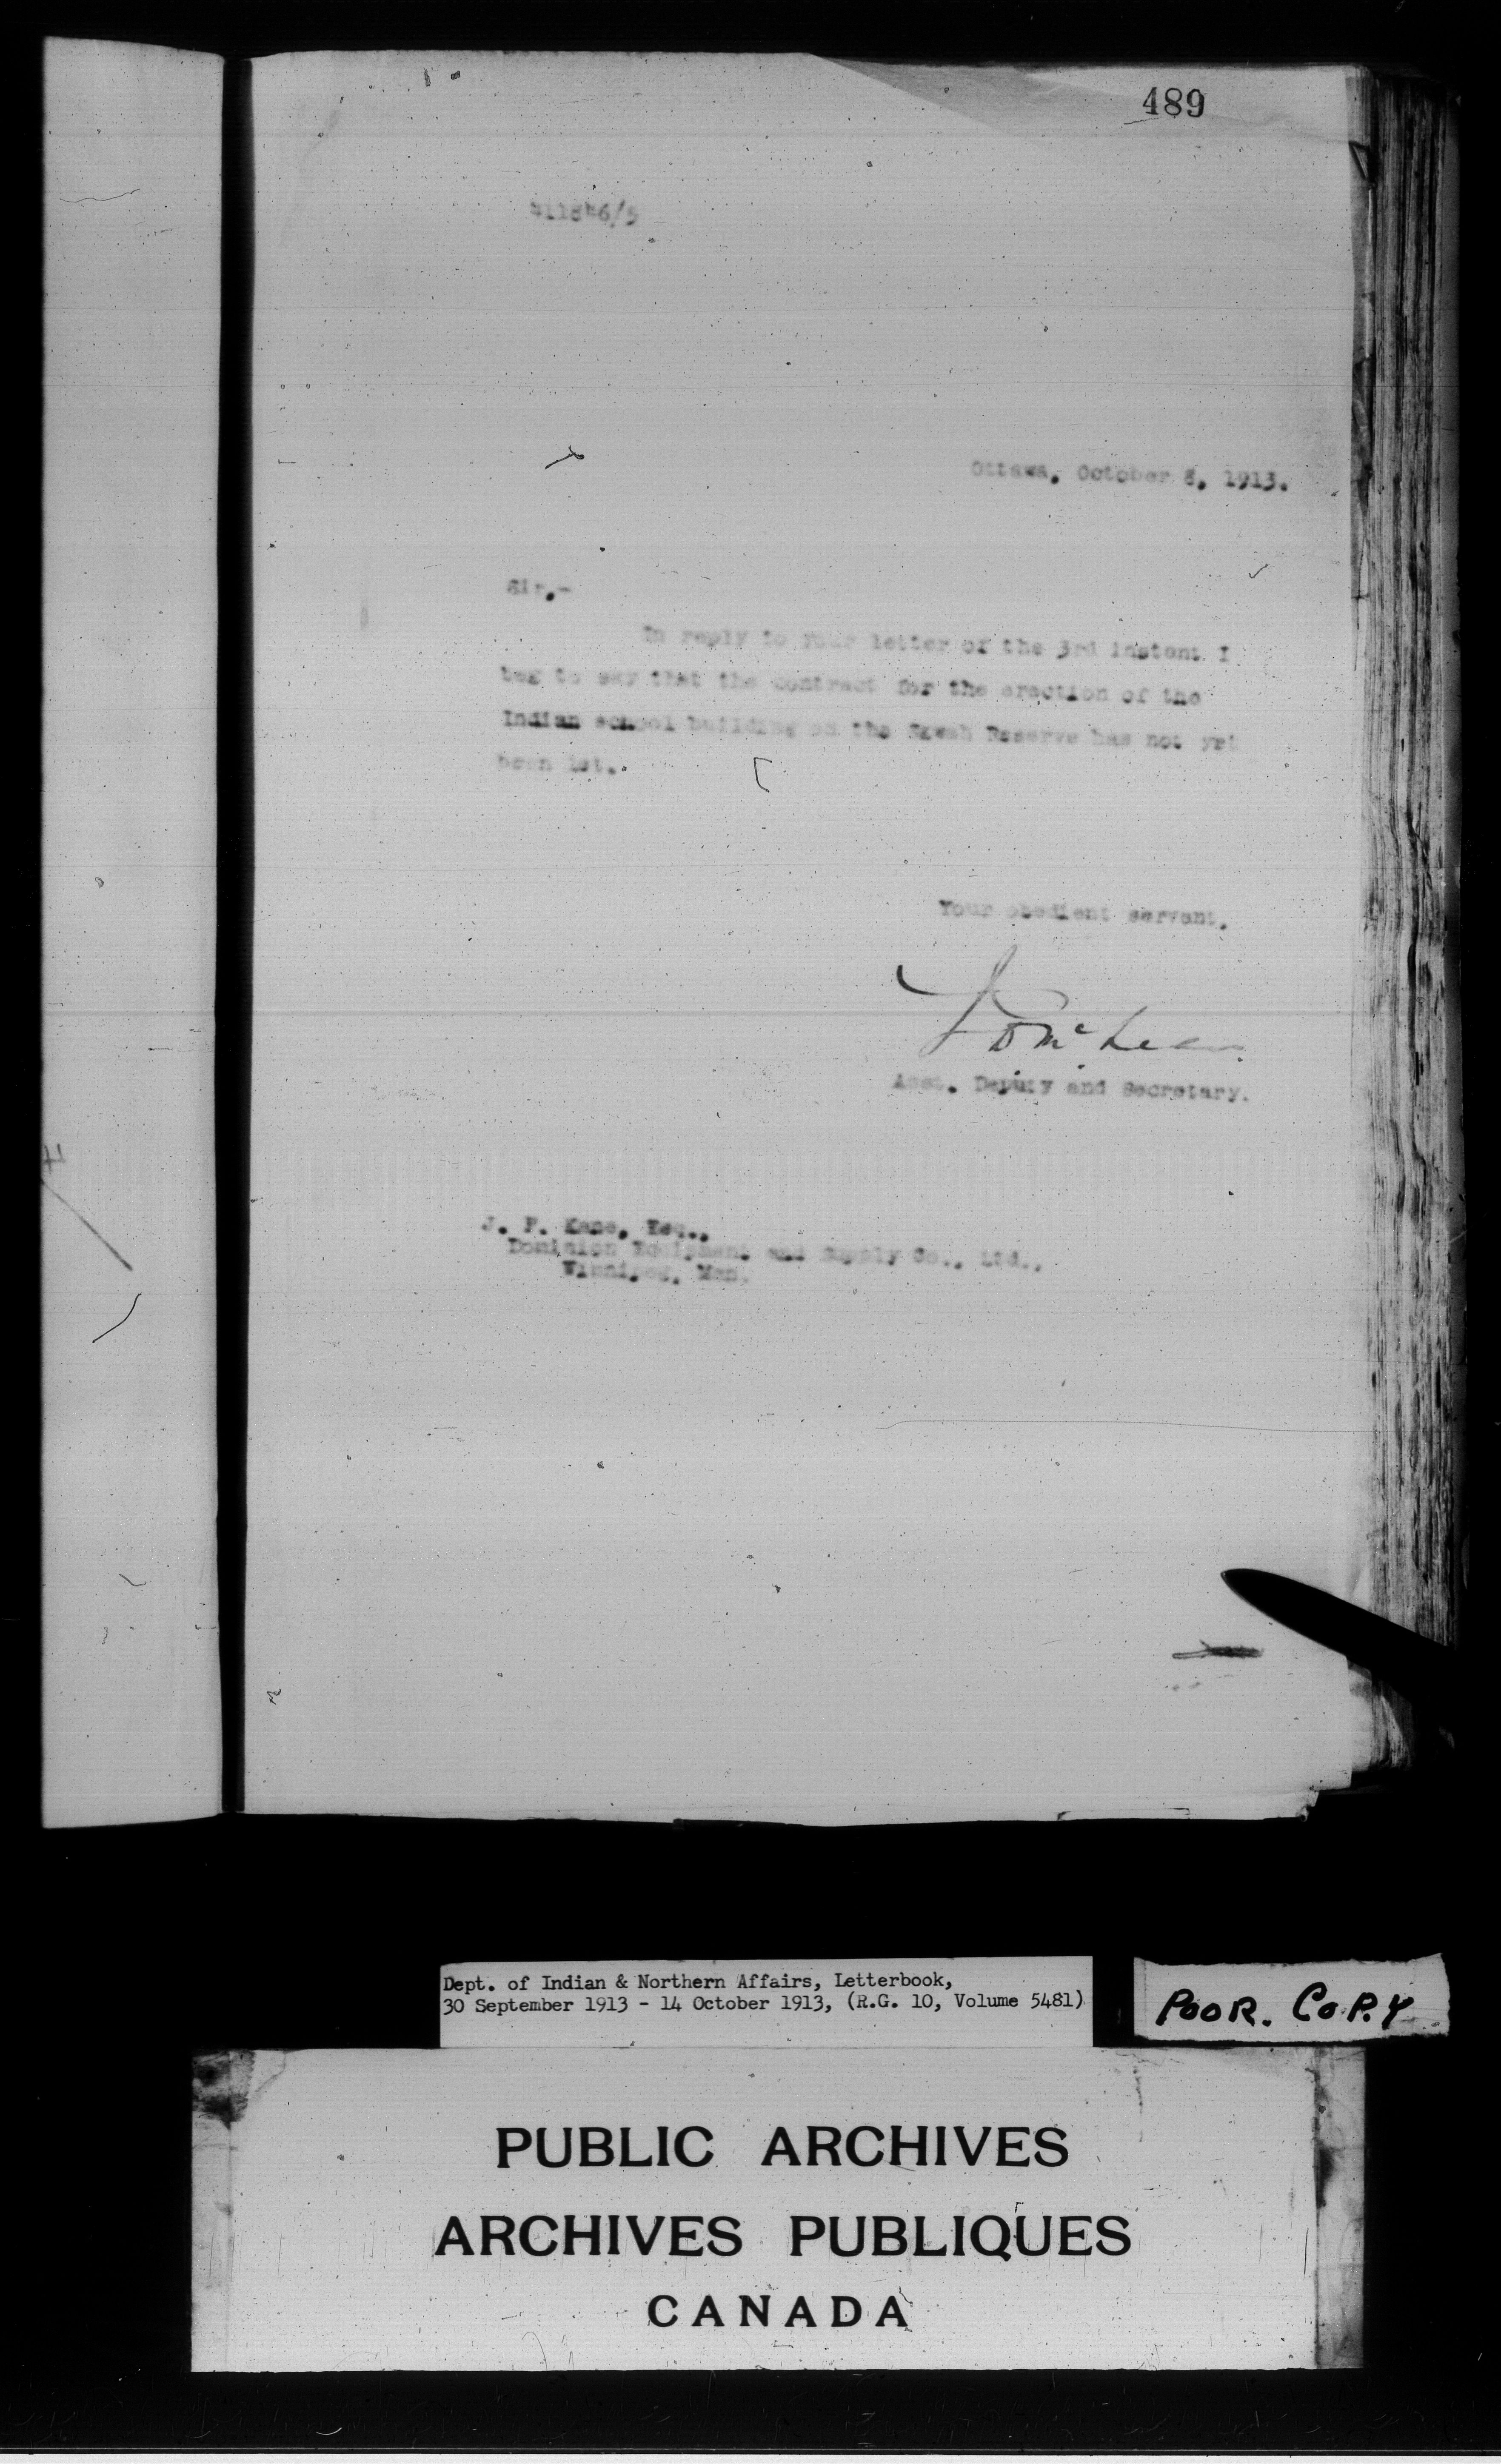 489
411846/5
Ottawa, October 8, 1913.
Sir,-
In reply to your letter of the 3rd instant I
beg to say that the contract for the erection of the
Indian school building on the Skwah Reserve has not yet
been let.
Your obedient servant,
J D McLean
Asst. Deputy and Secretary.
J. F. Kane, Esq.,
Dominion Equipment and Supply Co., Ltd.,
Winnipeg, Man.
Dept. of Indian & Northern Affairs, Letterbook,
30 September 1913 - 14 October 1913, (R.G. 10, Volume 5481)
POOR. COPY
PUBLIC ARCHIVES
ARCHIVES PUBLIQUES
CANADA